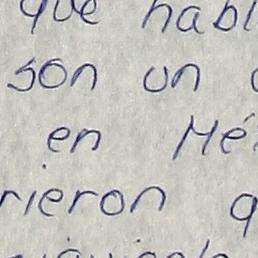 que habl
son un
en Mé
rieron q